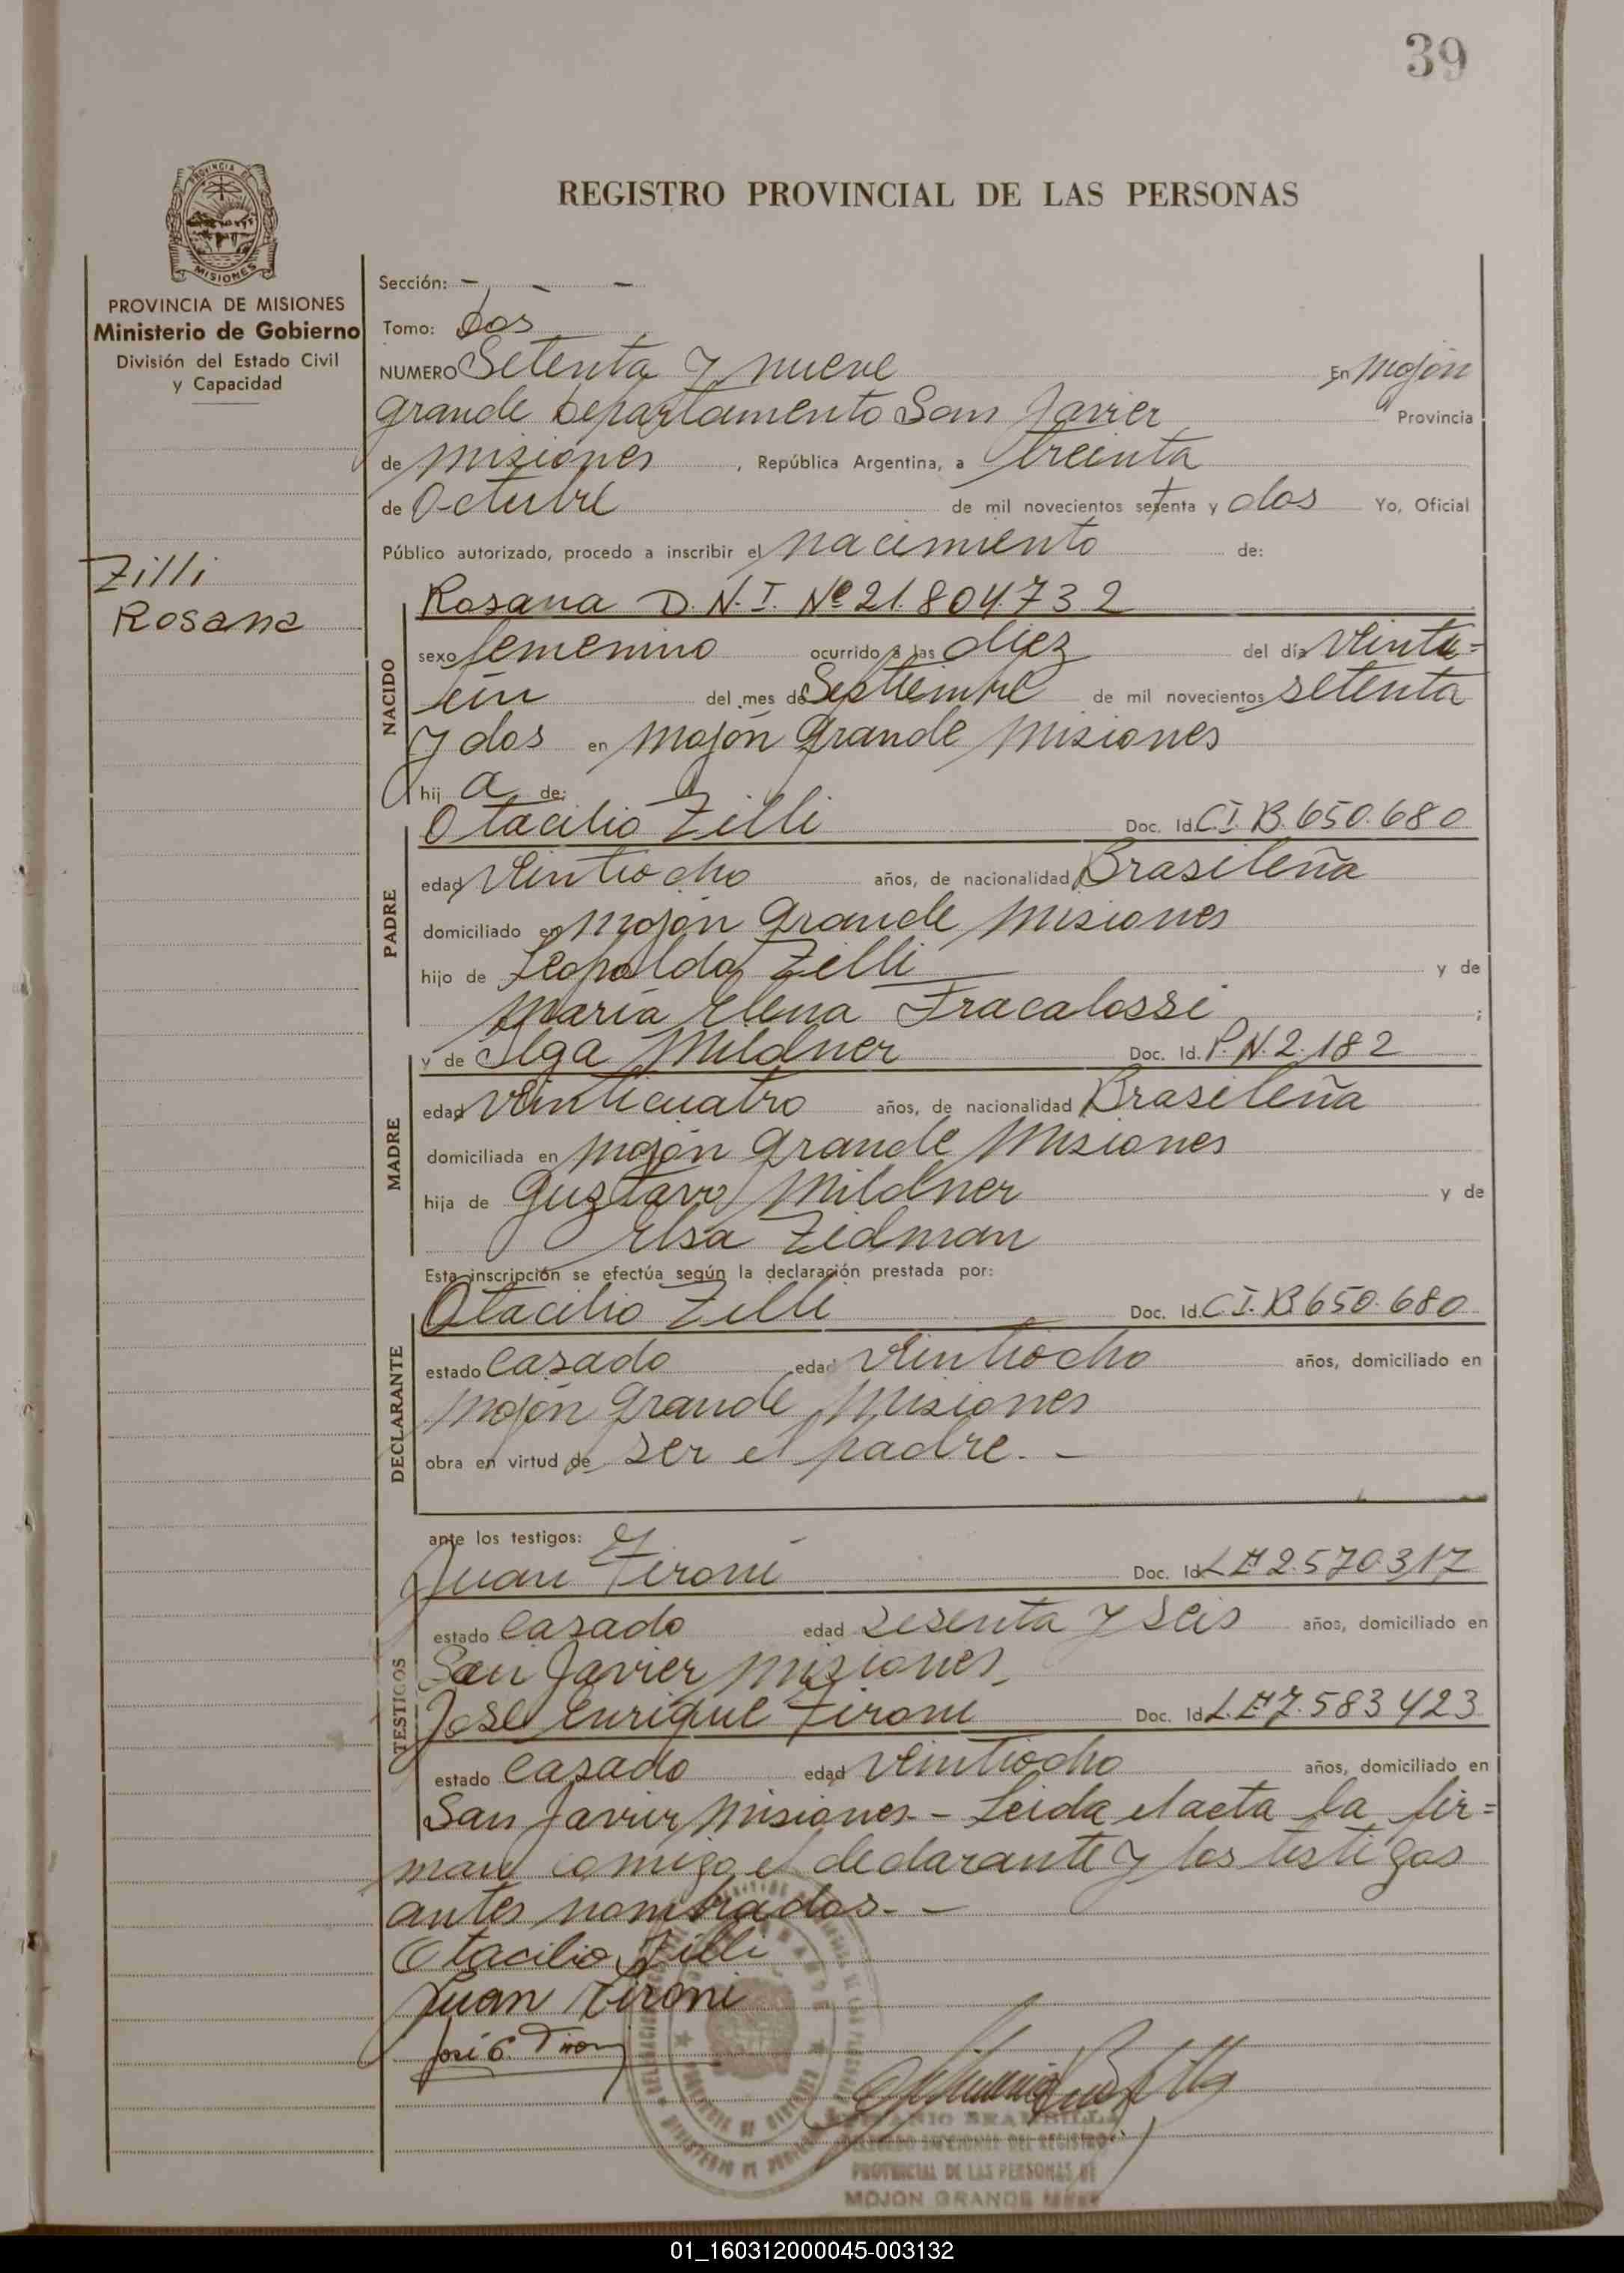 39
PROVINCIA DE
MISIONES
REGISTRO PROVINCIAL DE LAS PERSONAS
PROVINCIA DE MISIONES
Ministerio de Gobierno
División del Estado Civil
y Capacidad
Zilli
Rosana
Sección: - - -
Tomo: Dos
NUMERO Setenta y nueve En Mojón
grande Departamento San Javier Provincia
de Misiones, República Argentina, a treinta
de Octubre de mil novecientos setenta y dos Yo, Oficial
Público autorizado, procedo a inscribir el nacimiento de:
NACIDO
Rosana D.N.I. Nº 21.804.732
sexo femenino ocurrido a las diez del día veinti=
ún del mes de Septiembre de mil novecientos setenta
y dos en Mojón grande Misiones
hij a de:
PADRE
Otacilio Zilli Doc. Id. C.I.B. 650.680
edad veintiocho años, de nacionalidad Brasileña
domiciliado en Mojón grande Misiones
hijo de Leopoldo Zilli y de
María Elena Fracalossi ;
MADRE
y de Ilga Mildner Doc. Id. P.N. 2.182
edad veinticuatro años, de nacionalidad Brasileña
domiciliada en Mojón grande Misiones
hija de Gustavo Mildner y de
Elsa Zidman
Esta inscripción se efectúa según la declaración prestada por:
DECLARANTE
Otacilio Zilli Doc. Id. C.I.B 650.680
estado casado edad veintiocho años, domiciliado en
Mojón grande Misiones
obra en virtud de ser el padre. -
TESTIGOS
ante los testigos:
Juan Tironi Doc. Id. L.E 2.570.317
estado casado edad sesenta y seis años, domiciliado en
San Javier Misiones
José Enrique Tironi Doc. Id. L.E 7.583.423
estado casado edad veintiocho años, domiciliado en
San Javier Misiones - Leida el acta la fir=
man comigo el declarante y los testigos
antes nombrados. -
Otacilio Zilli
Juan Tironi
José E. Tironi
BRAMBILLA
DEL REGISTRO
PROVINCIAL DE LAS PERSONAS DE
MOJON GRANDE
01_160312000045-003132